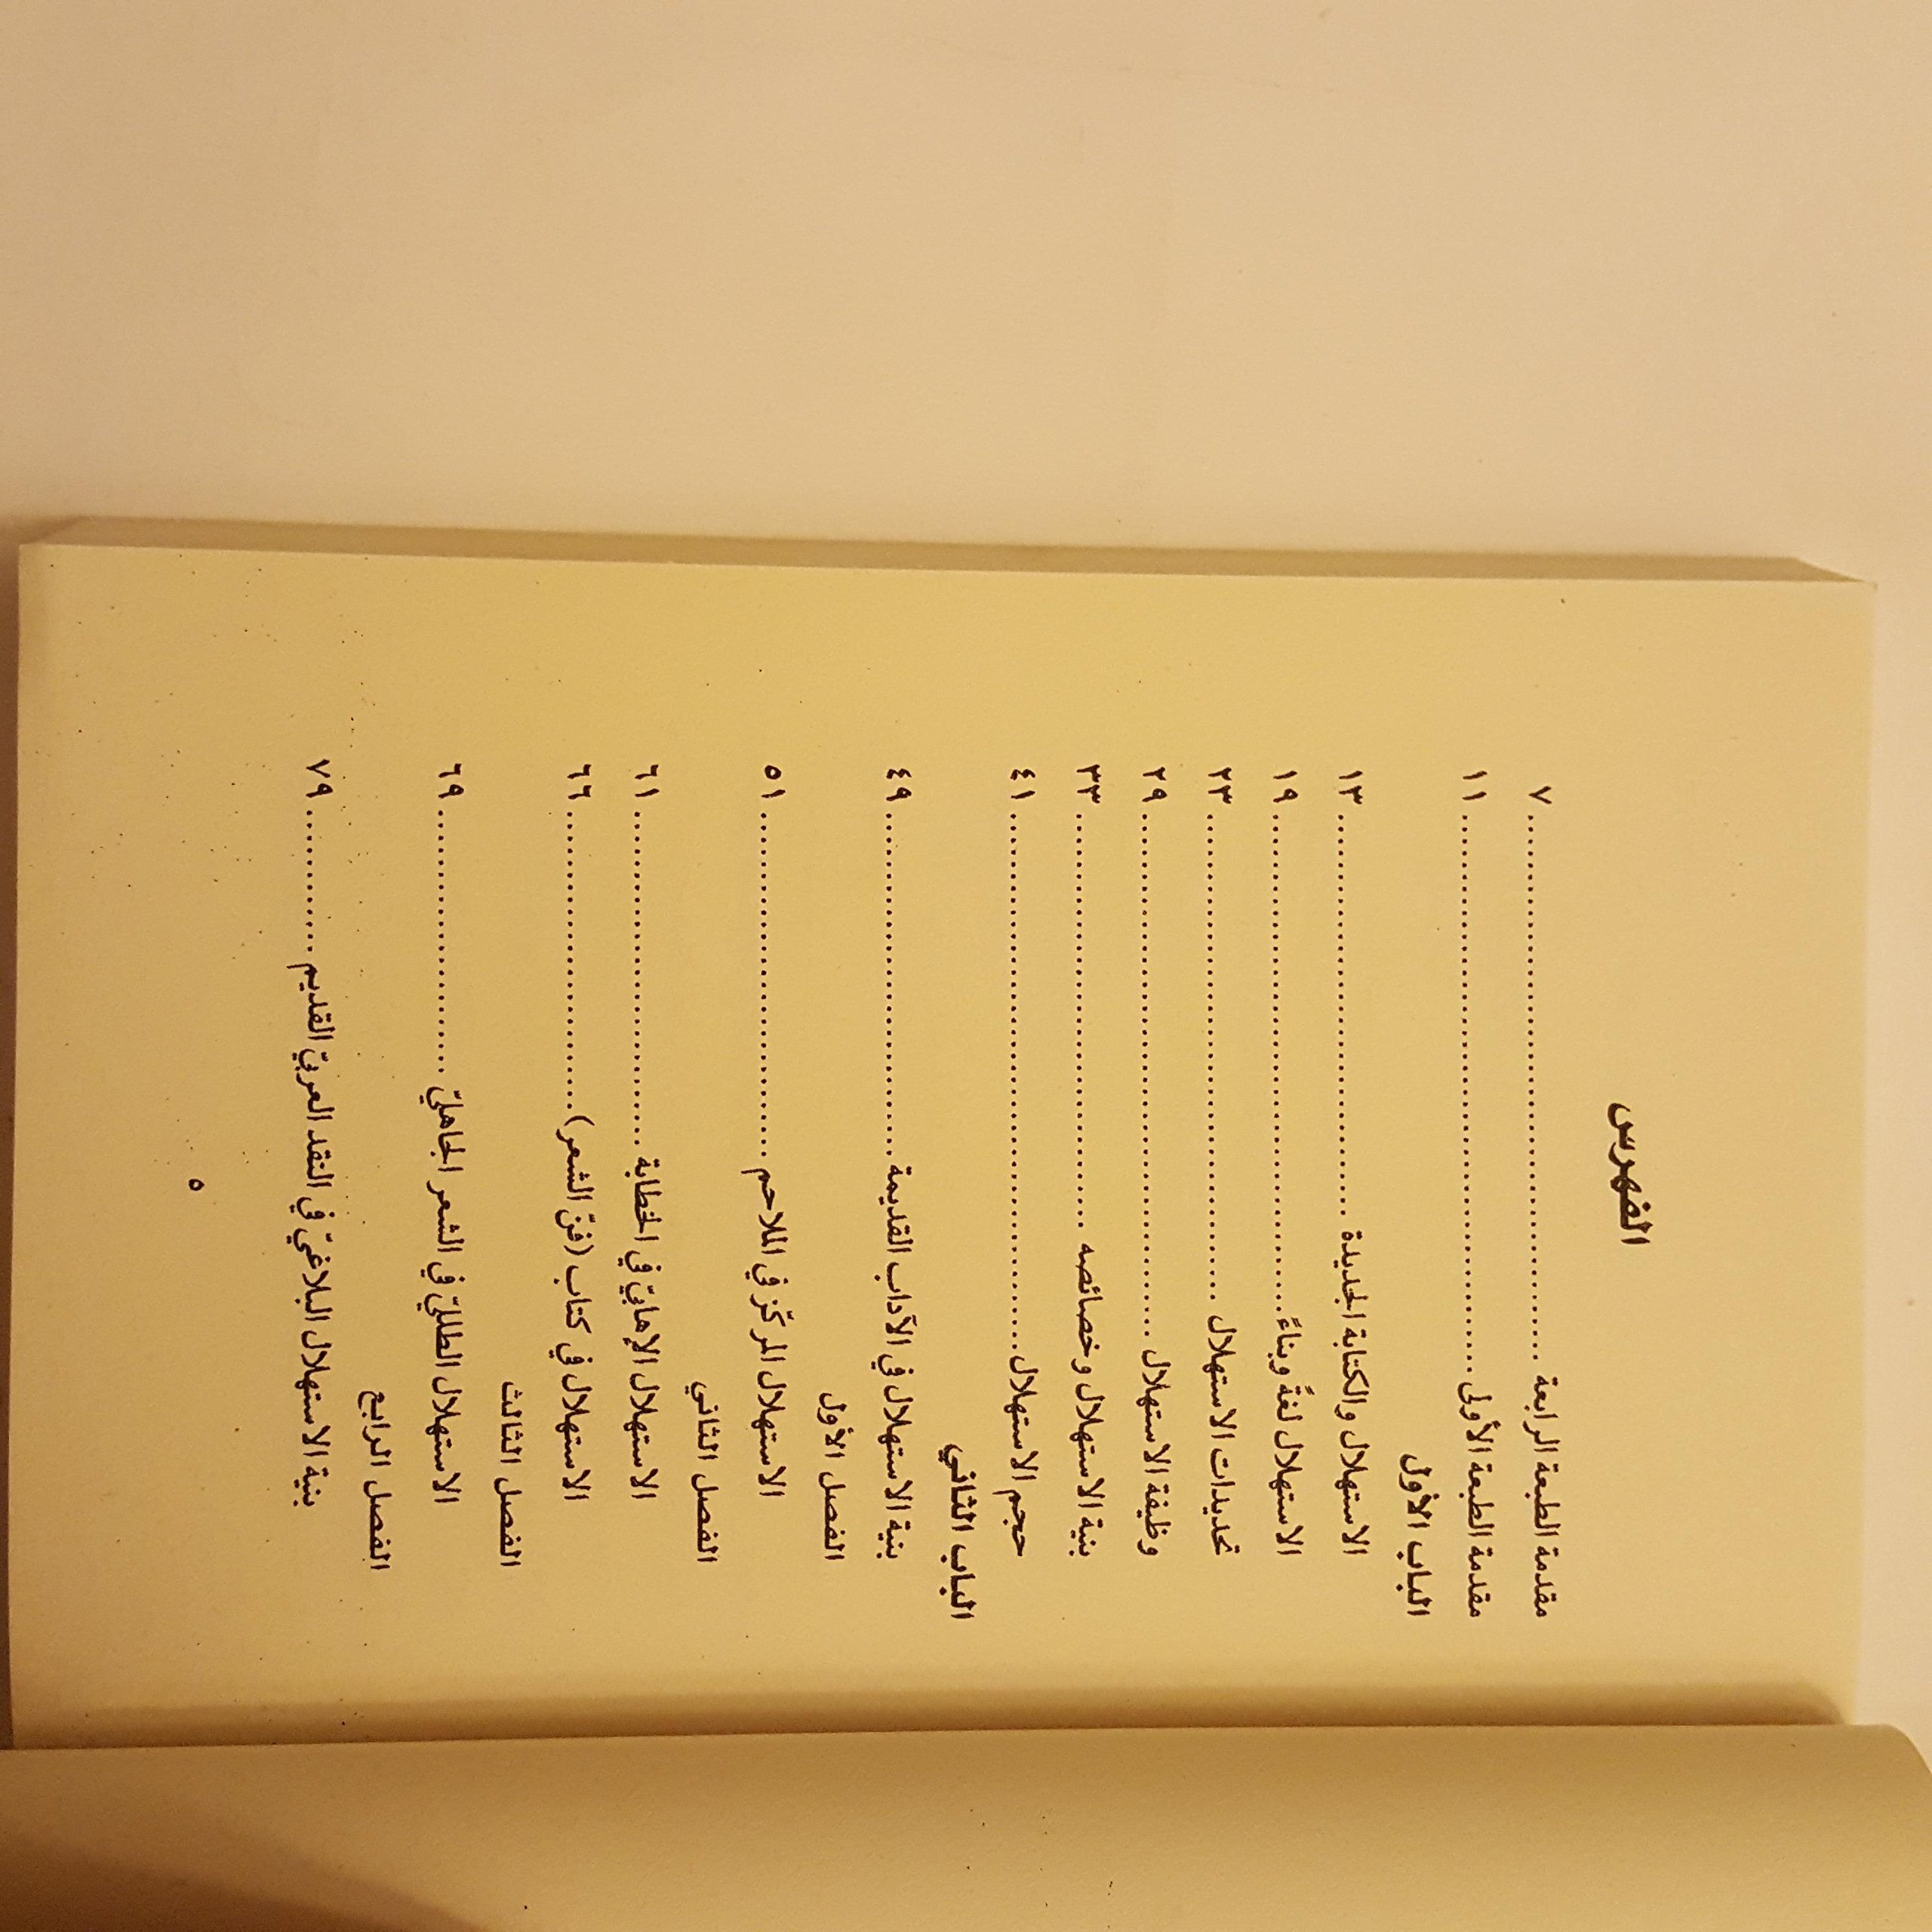 الفهرس
مقدمة الطبعة الرابعة ........................................ ٧
مقدمة الطبعة الأولى ........................................ ١١
الباب الأول
الاستهلال والكتابة الجديدة ........................................ ١٣
الاستهلال لغةً وبناءً ........................................ ١٩
تحديدات الاستهلال ........................................ ٢٣
وظيفة الاستهلال ........................................ ٢٩
بنية الاستهلال وخصائصه ........................................ ٣٣
حجم الاستهلال ........................................ ٤١
الباب الثاني
بنية الاستهلال في الآداب القديمة ........................................ ٤٩
الفصل الأول
الاستهلال المركّز في الملاحم ........................................ ٥١
الفصل الثاني
الاستهلال الإهابيّ في الخطابة ........................................ ٦١
الاستهلال في كتاب (فنّ الشعر) ........................................ ٦٦
الفصل الثالث
الاستهلال الطلليّ في الشعر الجاهليّ ........................................ ٦٩
الفصل الرابع
بنية الاستهلال البلاغيّ في النقد العربيّ القديم .................... ٧٩
٥